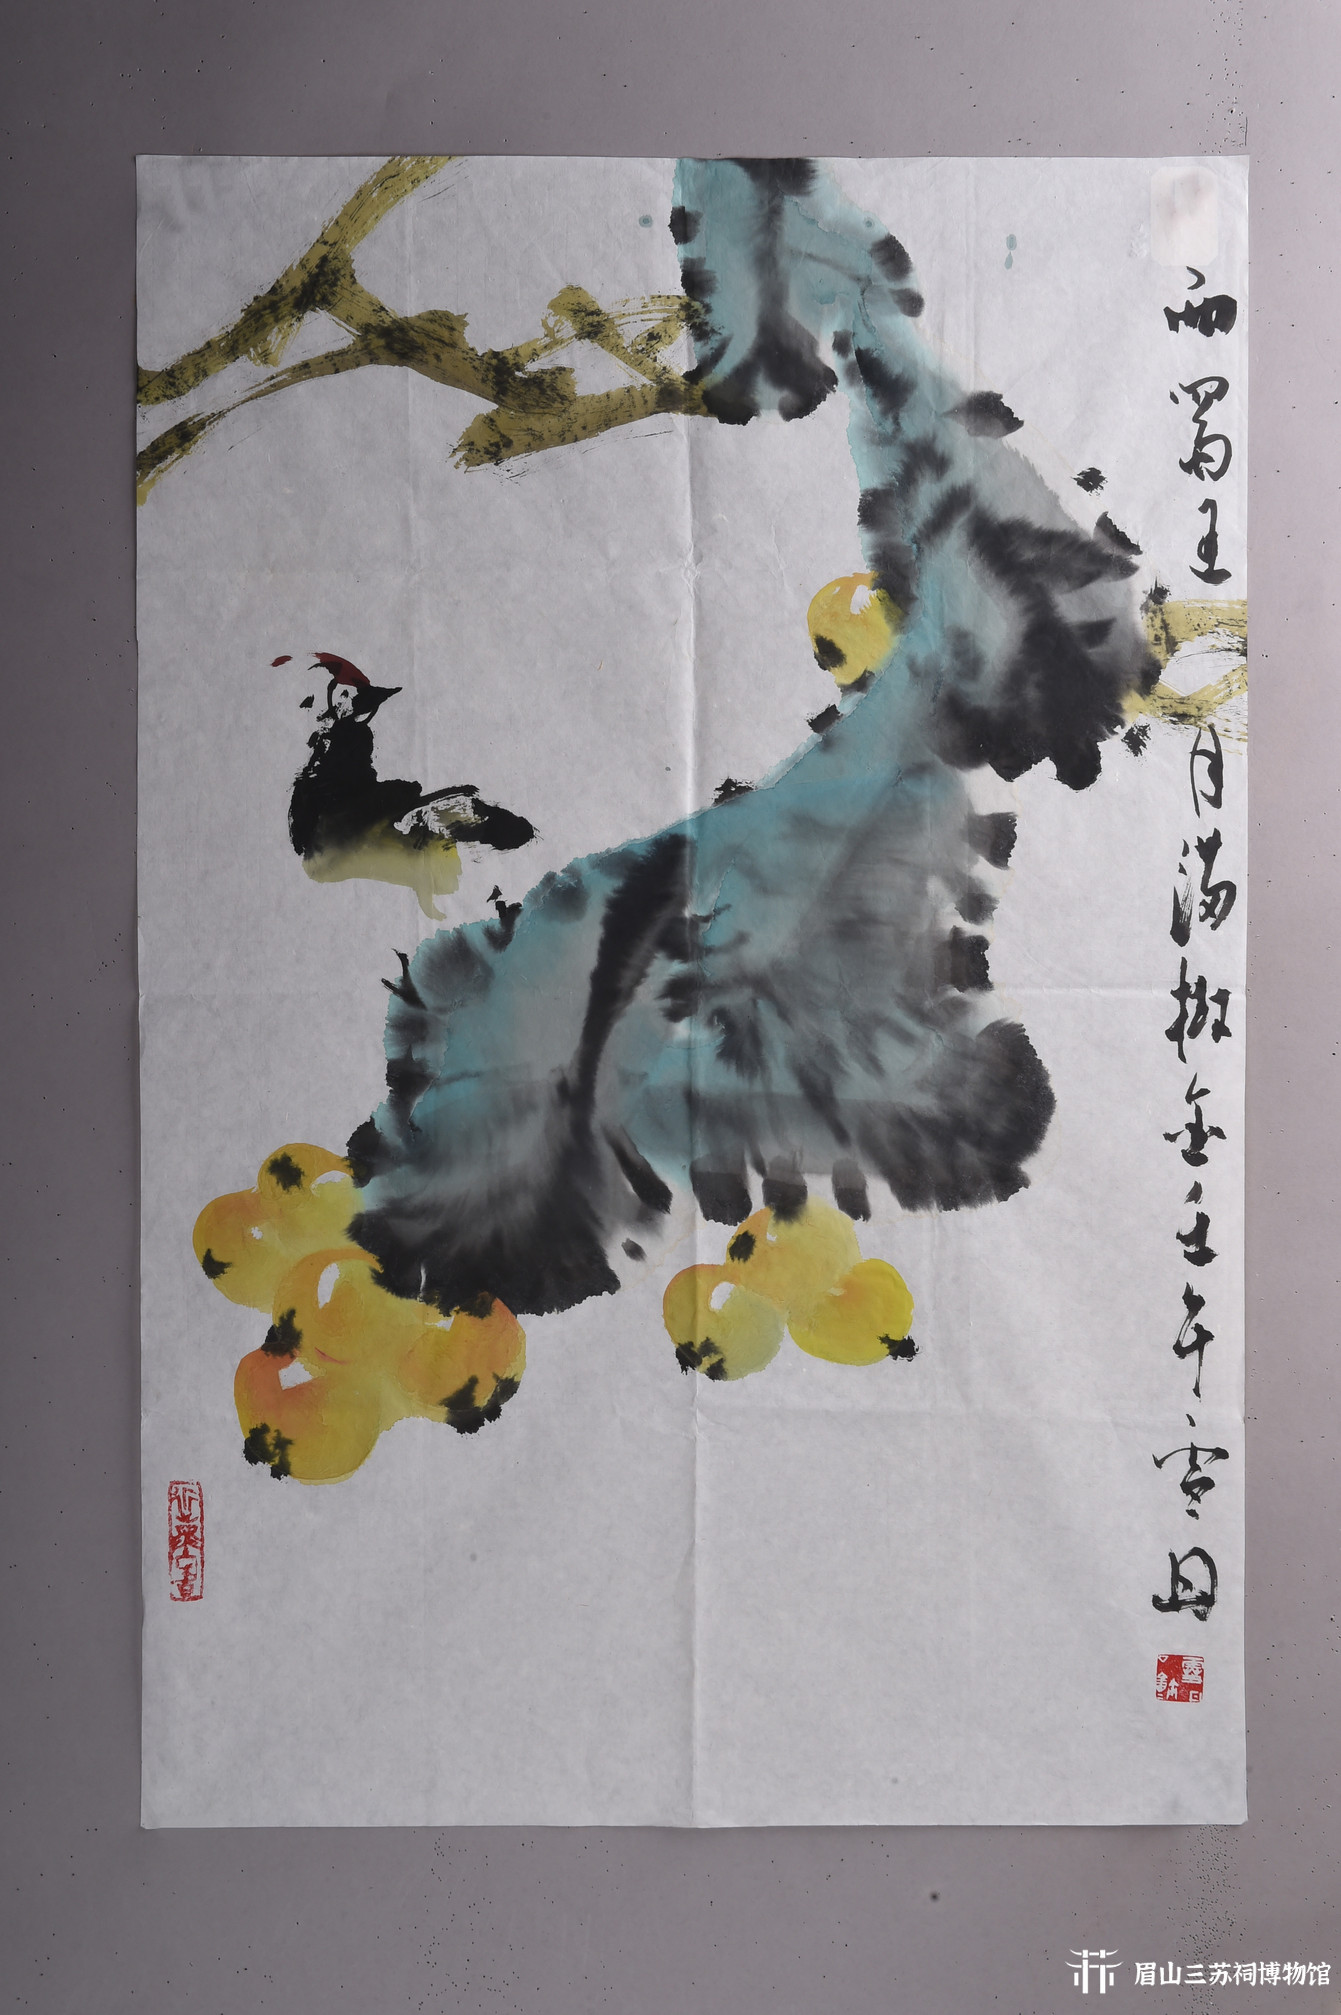 西蜀五月满树金壬午雪日
眉山三苏祠博物馆